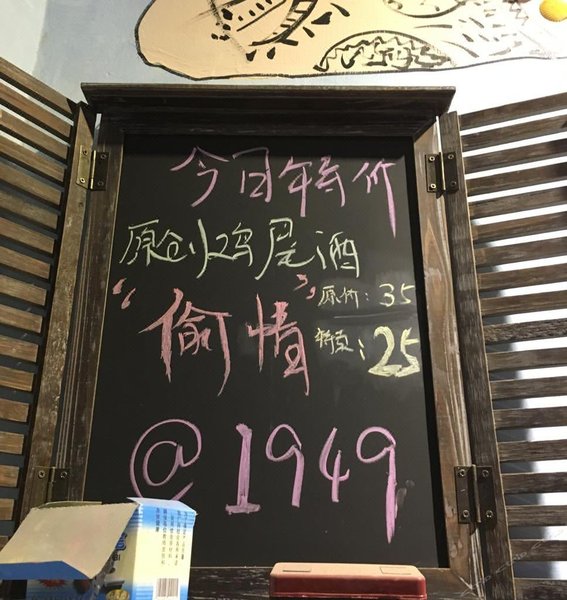 今日特价
原创鸡尾酒
“偷情”
原价：35
特价：25
@1949